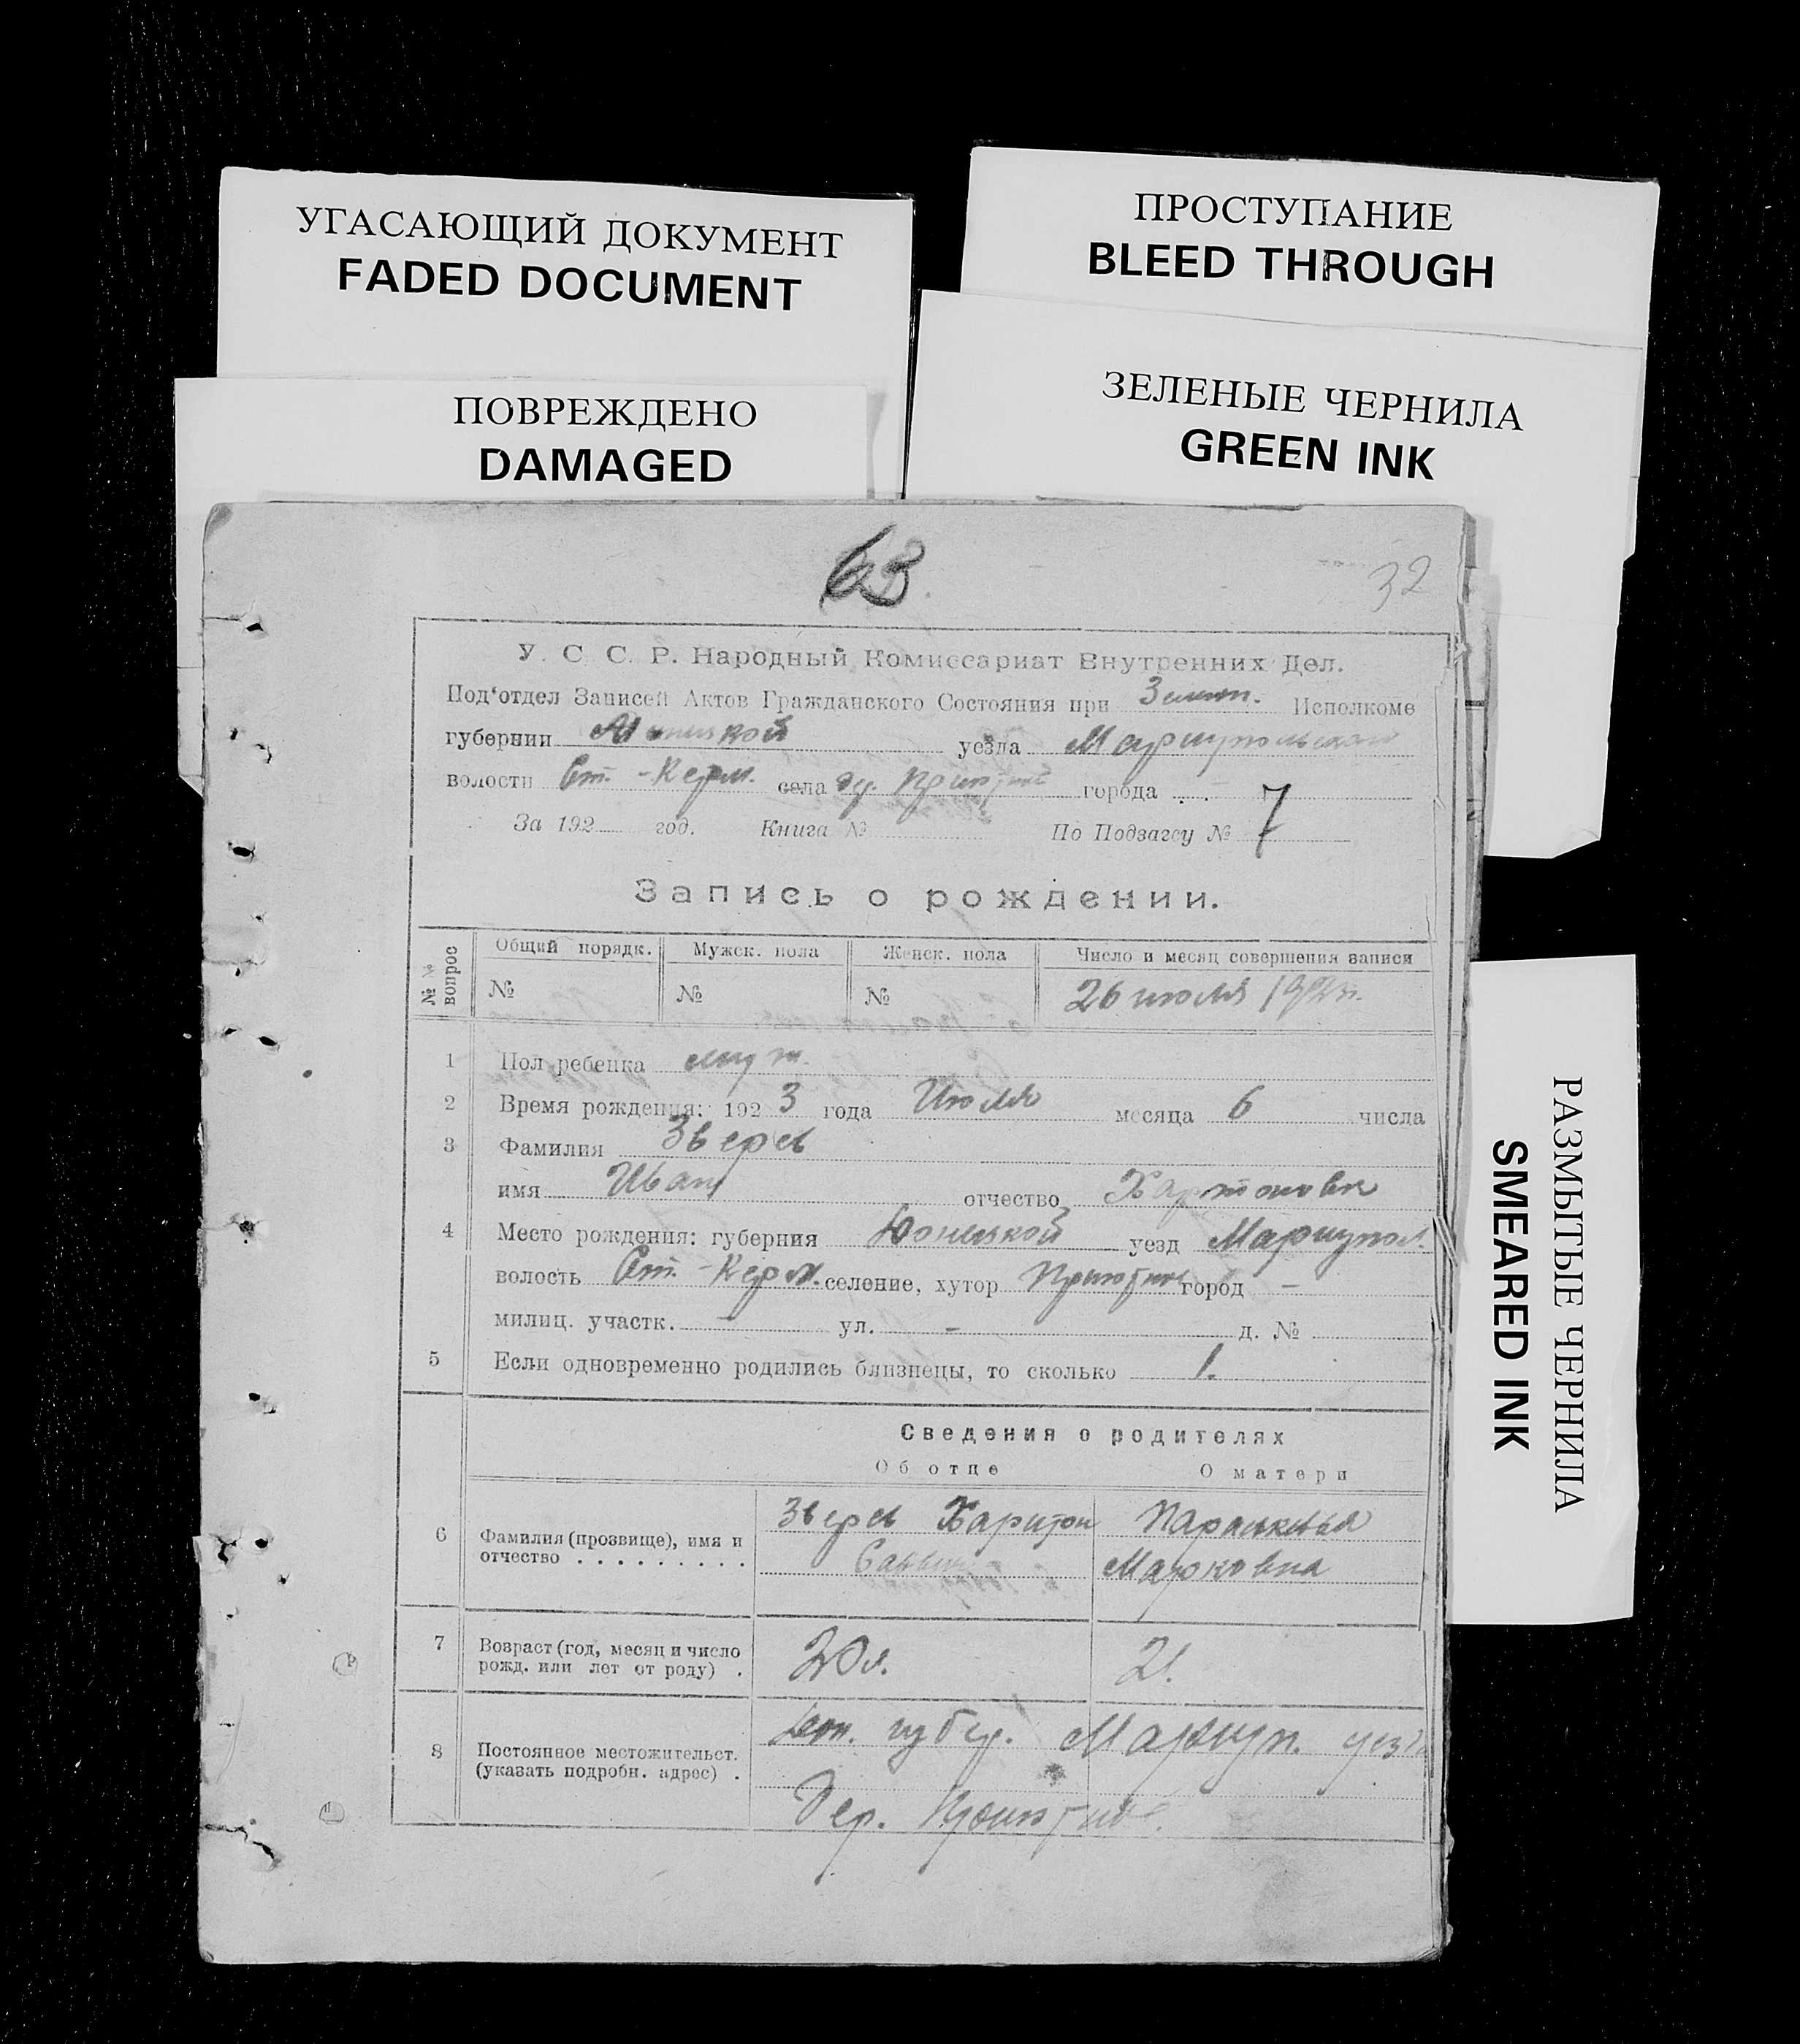 УГАСАЮЩИЙ ДОКУМЕНТ
FADED DOCUMENT
ПРОСТУПАНИЕ
BLEED THROUGH
ПОВРЕЖДЕНО
DAMAGED
ЗЕЛЕНЫЕ ЧЕРНИЛА
GREEN INK
РАЗМЫТЫЕ ЧЕРНИЛА
SMEARED INK
63
32
У. С. С. Р. Народный Комиссариат Внутренних Дел.
Под'отдел Записей Актов Гражданского Состояния при Исполкоме
губернии уезда Мариупольского
волости Ст.-Керм. села города
7
За 192 год. Книга № По Подзагсу №
Запись о рождении.
№№ вопрос
Общий порядк. Мужск. пола Женск. пола Число и месяц совершения записи
№ № № 26 июля 192
1 Пол ребенка муж.
2 Время рождения: 192 3 года Июля месяца 6 числа
3 Фамилия Зверев
имя Иван отчество Харитонович
4 Место рождения: губерния Донецкой уезд Мариупол.
волость Ст.-Керм. селение, хутор Приютное город -
милиц. участк. - ул. - д. №
5 Если одновременно родились близнецы, то сколько 1.
Сведения о родителях
Об отце О матери
6 Фамилия (прозвище), имя и отчество . . . . . . . . .
Зверев Харитон
Саввич
Параскевья
Марковна
7 Возраст (год, месяц и число рожд. или лет от роду) .
20 л. 21.
8 Постоянное местожительст. (указать подробн. адрес) .
Дон. губер. Мариуп. уезд
Дер. Приютное.